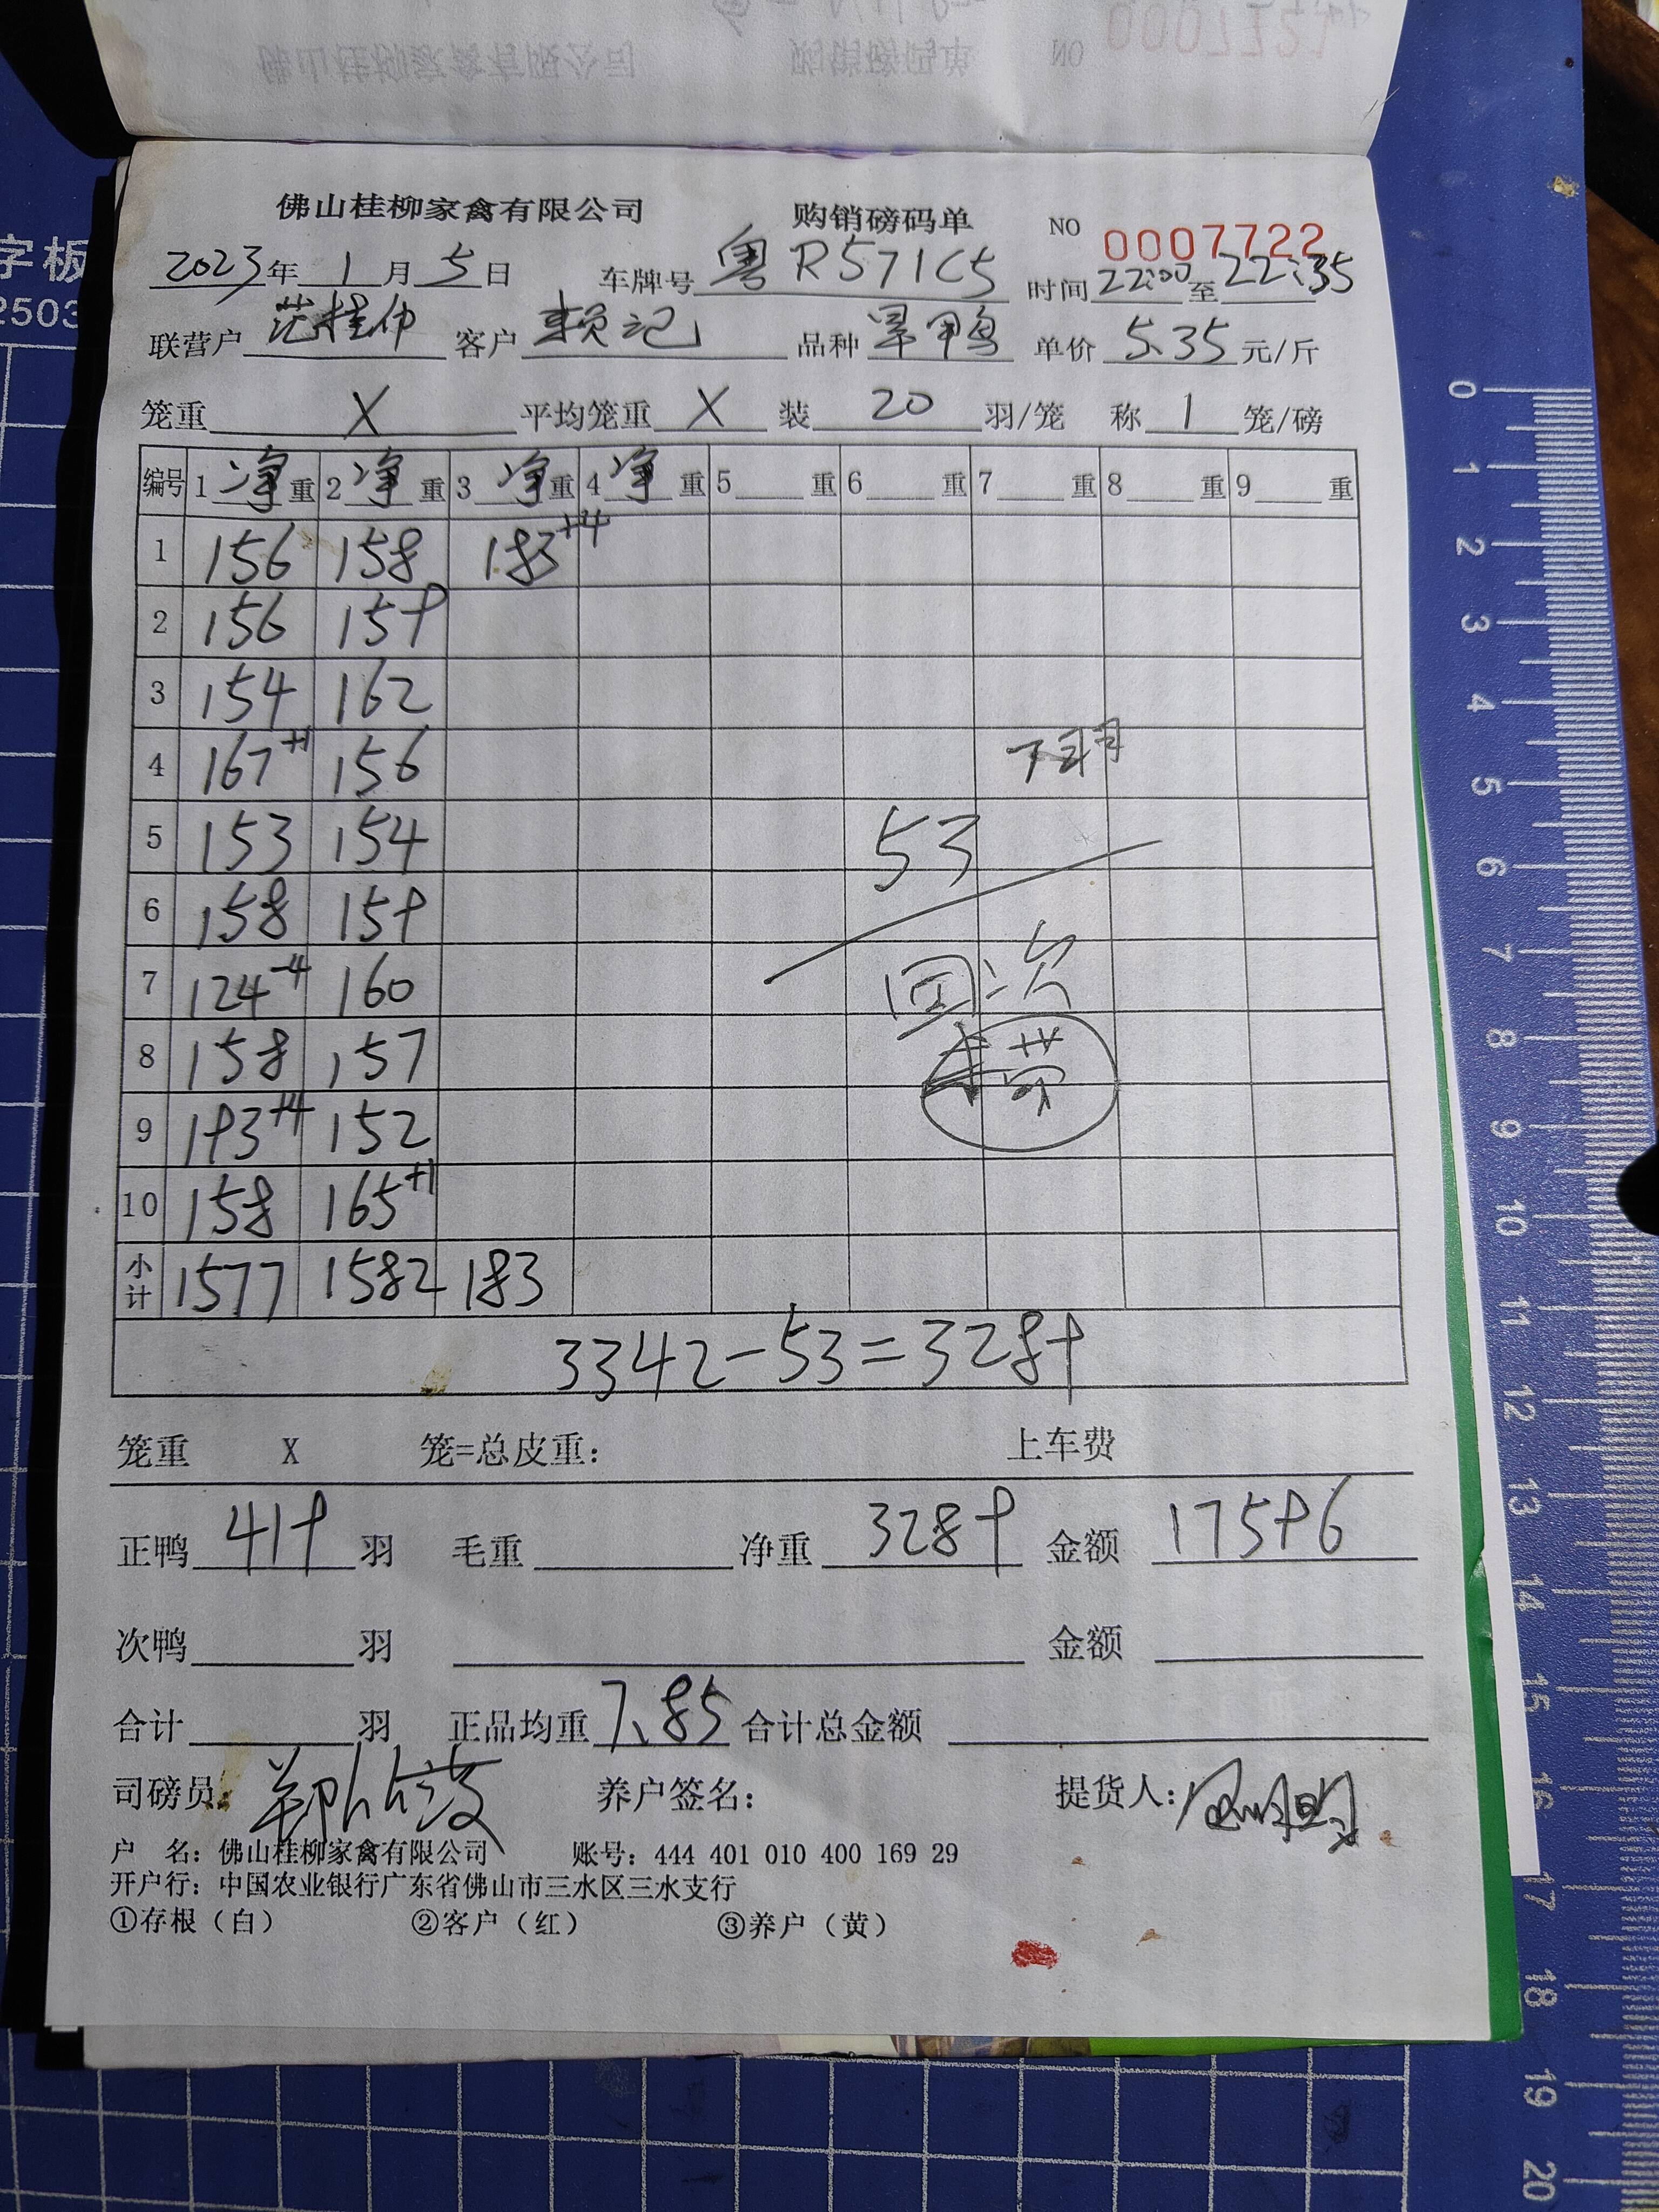 佛山桂柳家禽有限公司 购销磅码单 NO 0007722
2023年 1 月 5 日 车牌号 粤R571C5 时间 22:00 至 22:35
联营户 范桂仲 客户 赖记 品种 旱鸭 单价 5.35 元/斤
笼重 X 平均笼重 X 装 20 羽/笼 称 1 笼/磅
编号 1 净 重 2 净 重 3 净 重 4 净 重 5 重 6 重 7 重 8 重 9 重
1 156 158 183+4
2 156 159
3 154 162
4 167+1 156
5 153 154
6 158 159
7 124-4 160
8 158 157
9 193+4 152
10 158 165+1
53
回次
带
小计 1577 1582 183
3342-53=3289
笼重 X 笼=总皮重: 上车费
正鸭 419 羽 毛重 净重 3289 金额 17596
次鸭 羽 金额
合计 羽 正品均重 7.85 合计总金额
司磅员: 养户签名: 提货人:
户 名: 佛山桂柳家禽有限公司 账号: 444 401 010 400 169 29
开户行: 中国农业银行广东省佛山市三水区三水支行
①存根（白） ②客户（红） ③养户（黄）
字板
2503
0
1
2
3
4
5
6
7
8
9
10
11
12
13
14
15
16
17
18
19
20